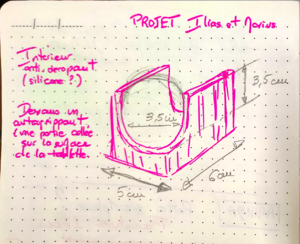 PROJET Ilias et Marius.
Intérieur
anti-dérapant
(silicone ?)
Dessous un
autoagrippant
(une partie collée
sur la surface
de la tablette.
3,5cm
3,5cm
5cm
6cm